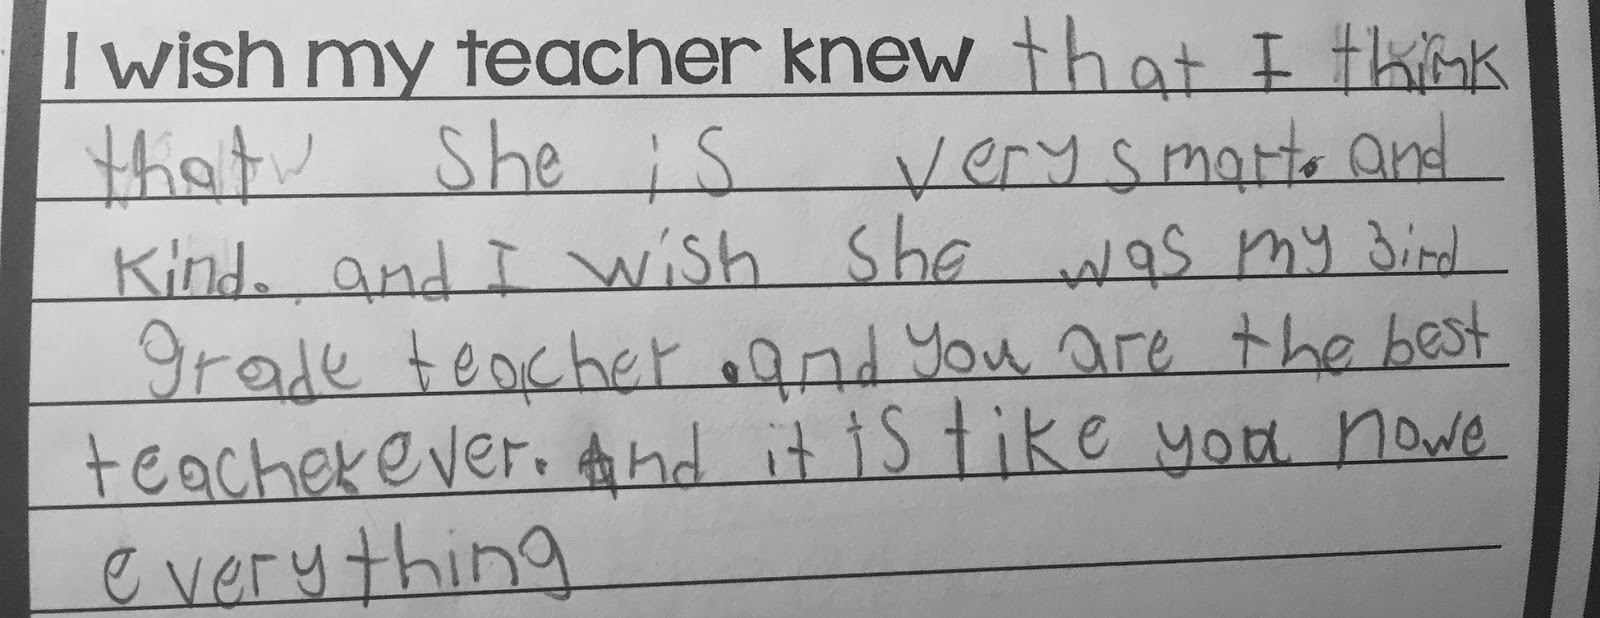 I wish my teacher knew that I think
that she is very smart. and
kind. and I wish she was my 3ird
grade teacher .and you are the best
teacher ever. And it is like you nowe
everything